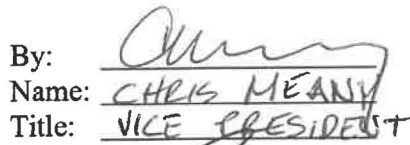 By:
Name: CHRIS MEANY
Title: VICE PRESIDENT